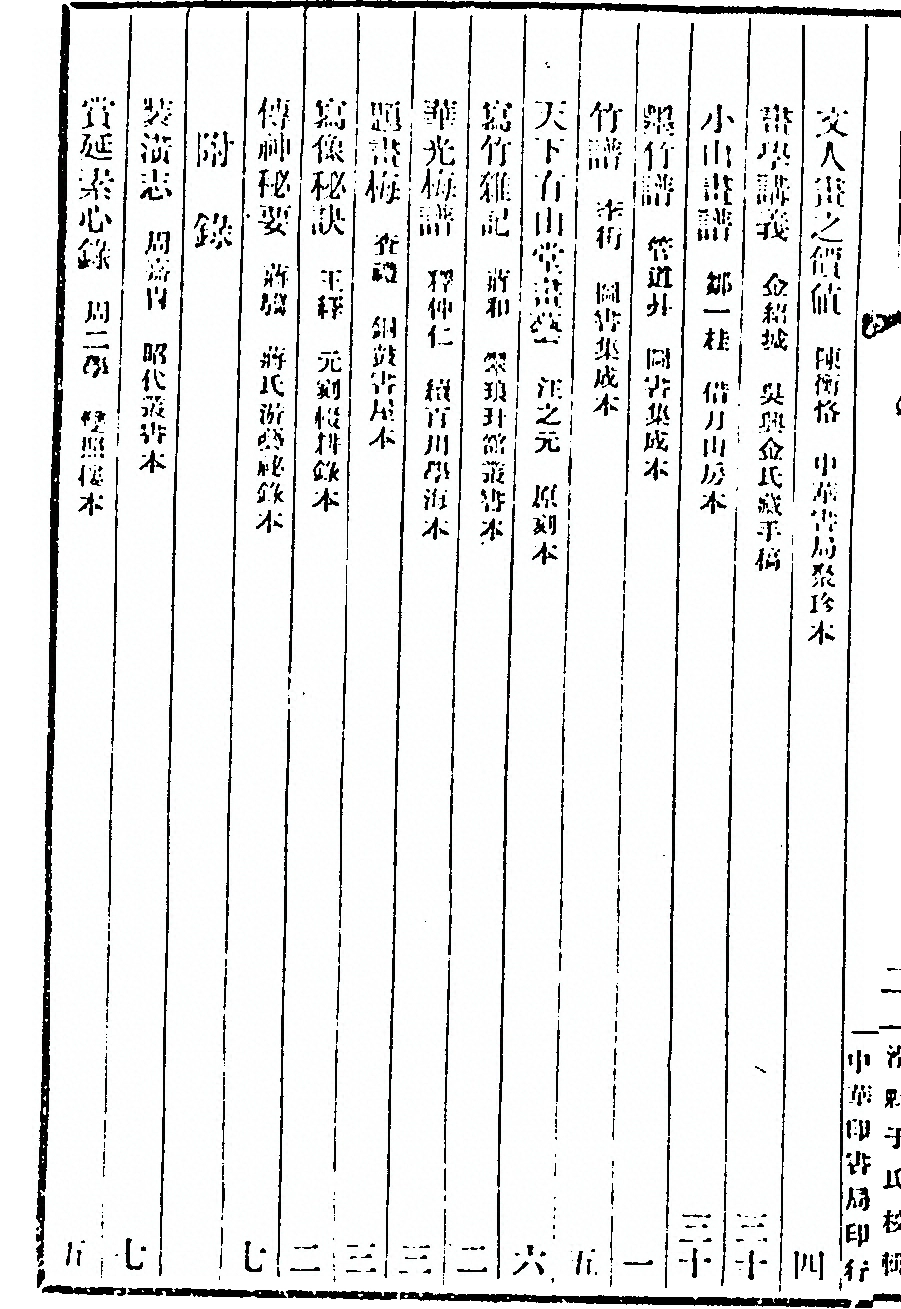 二
淮縣于氏校輯
中華印書局印行
文人畫之價值　陳衡恪　中華書局聚珍本　四
畫學講義　金紹城　吳興金氏藏手稿　三十
小山畫譜　鄒一桂　借月山房本　三十
墨竹譜　管道昇　圖書集成本　一
竹譜　李衎　圖書集成本　五
天下有山堂畫藝　汪之元　原刻本　六
寫竹雜記　蔣和　翠琅玕館叢書本　二
華光梅譜　釋仲仁　續百川學海本　三
題畫梅　查禮　銅鼓書屋本　三
寫像秘訣　王繹　元刻輟耕錄本　二
傳神秘要　蔣驥　蔣氏游藝秘錄本　七
附錄
裝潢志　周嘉胄　昭代叢書本　七
賞延素心錄　周二學　雙照樓本　五